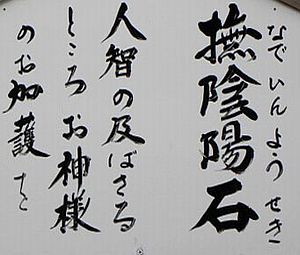 撫陰陽石
なでいんようせき
人智の及ばざる
ところお神様
のお加護を